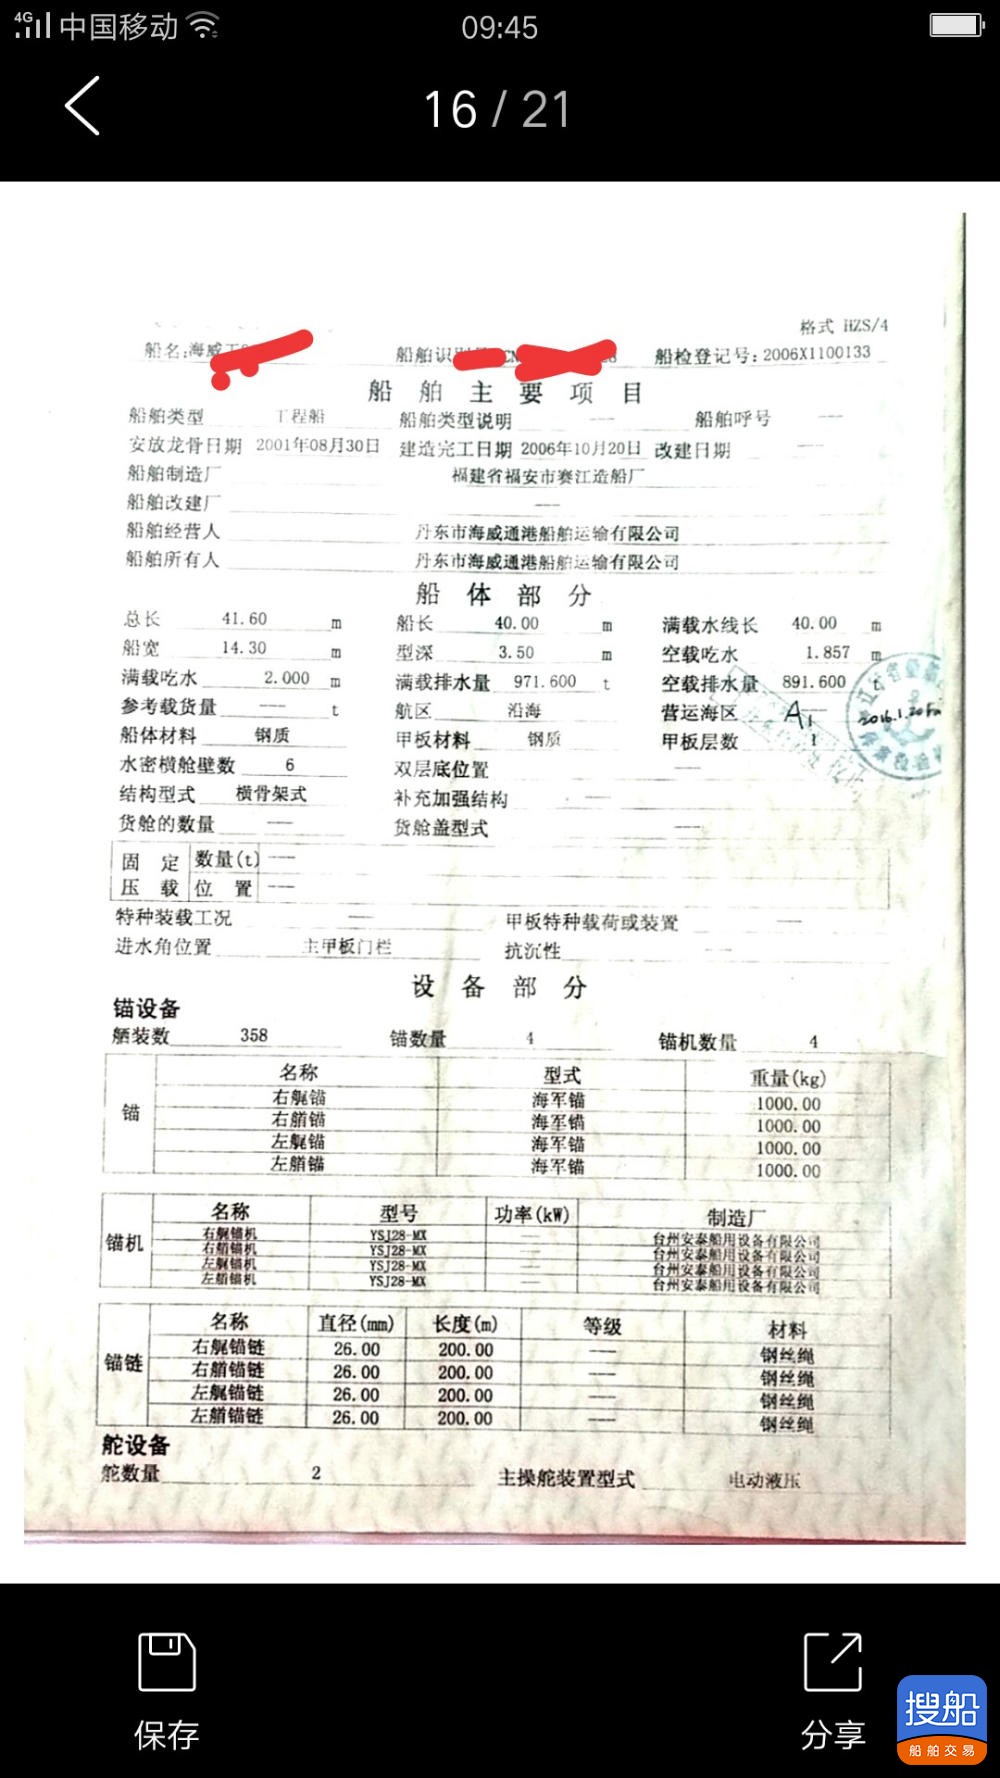 4G 中国移动 09:45
16 / 21
格式 HZS/4
船名:海威工 船舶识 CN 船检登记号:2006X1100133
船舶主要项目
船舶类型 工程船 船舶类型说明 — 船舶呼号 —
安放龙骨日期 2001年08月30日 建造完工日期 2006年10月20日 改建日期 —
船舶制造厂 福建省福安市赛江造船厂
船舶改建厂 —
船舶经营人 丹东市海威通港船舶运输有限公司
船舶所有人 丹东市海威通港船舶运输有限公司
船体部分
总长 41.60 m 船长 40.00 m 满载水线长 40.00 m
船宽 14.30 m 型深 3.50 m 空载吃水 1.857 m
满载吃水 2.000 m 满载排水量 971.600 t 空载排水量 891.600 t
参考载货量 — t 航区 沿海 营运海区 A1
2016.1.20
船体材料 钢质 甲板材料 钢质 甲板层数 1
水密横舱壁数 6 双层底位置 —
结构型式 横骨架式 补充加强结构 —
货舱的数量 — 货舱盖型式 —
固定 数量(t) —
压载 位置 —
特种装载工况 — 甲板特种载荷或装置 —
进水角位置 主甲板门栏 抗沉性 —
设备部分
锚设备
舾装数 358 锚数量 4 锚机数量 4
锚 名称 型式 重量(kg)
右艉锚 海军锚 1000.00
右艏锚 海军锚 1000.00
左艉锚 海军锚 1000.00
左艏锚 海军锚 1000.00
锚机 名称 型号 功率(kW) 制造厂
右艉锚机 YSJ28-MX — 台州安泰船用设备有限公司
右艏锚机 YSJ28-MX — 台州安泰船用设备有限公司
左艉锚机 YSJ28-MX — 台州安泰船用设备有限公司
左艏锚机 YSJ28-MX — 台州安泰船用设备有限公司
锚链 名称 直径(mm) 长度(m) 等级 材料
右艉锚链 26.00 200.00 — 钢丝绳
右艏锚链 26.00 200.00 — 钢丝绳
左艉锚链 26.00 200.00 — 钢丝绳
左艏锚链 26.00 200.00 — 钢丝绳
舵设备
舵数量 2 主操舵装置型式 电动液压
保存 分享
搜船
船舶交易